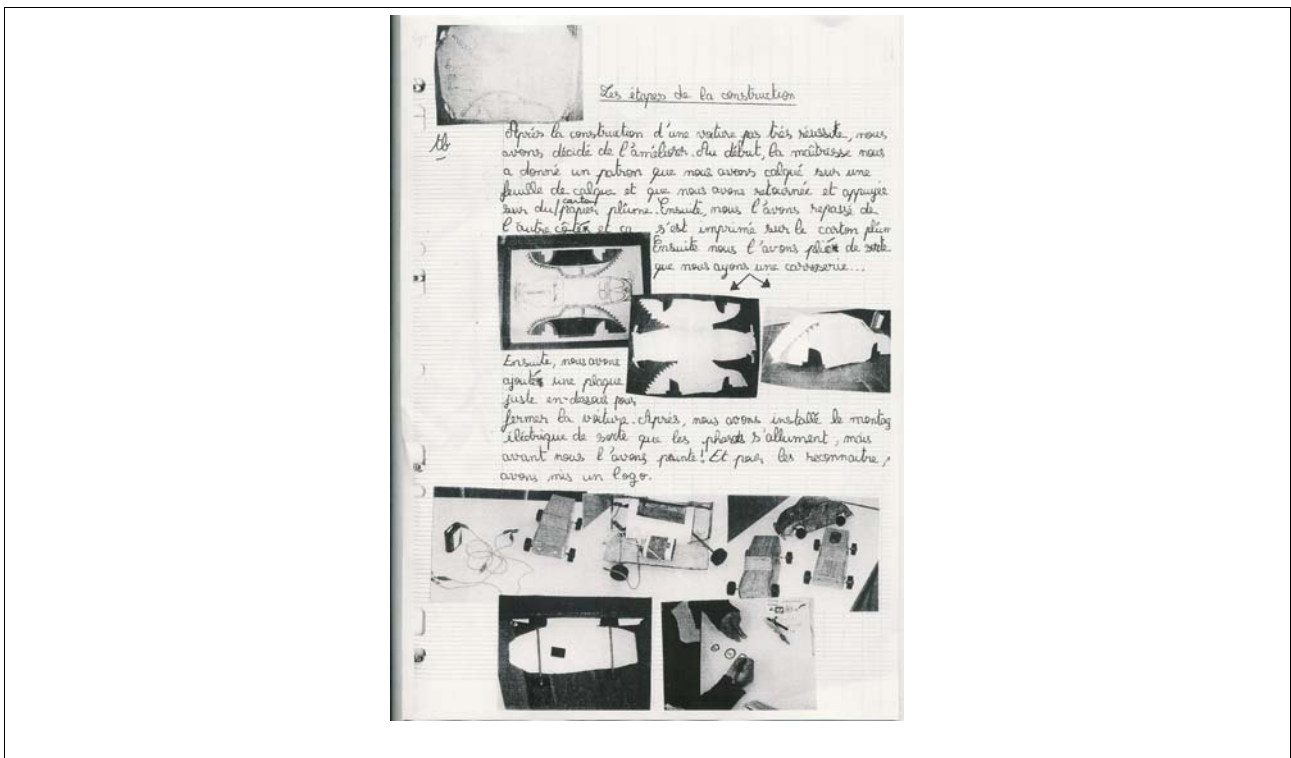 Les étapes de la construction
tb
Après la construction d'une voiture pas très réussite, nous
avons décidé de l'améliorer. Au début, la maîtresse nous
a donné un patron que nous avons calqué sur une
feuille de calque et que nous avons retournée et appuyée
carton
sur du/papier plume. Ensuite, nous l'avons repassé de
l'autre côté et ça s'est imprimé sur le carton plum
Ensuite nous l'avons plié de sorte
que nous ayons une carosserie...
Ensuite, nous avons
ajouté une plaque
juste en-dessous pour
fermer la voiture. Après, nous avons installé le montag
éléctrique de sorte que les phares s'allument, mais
avant nous l'avons peinte! Et pour les reconnaitre,
avons mis un logo.